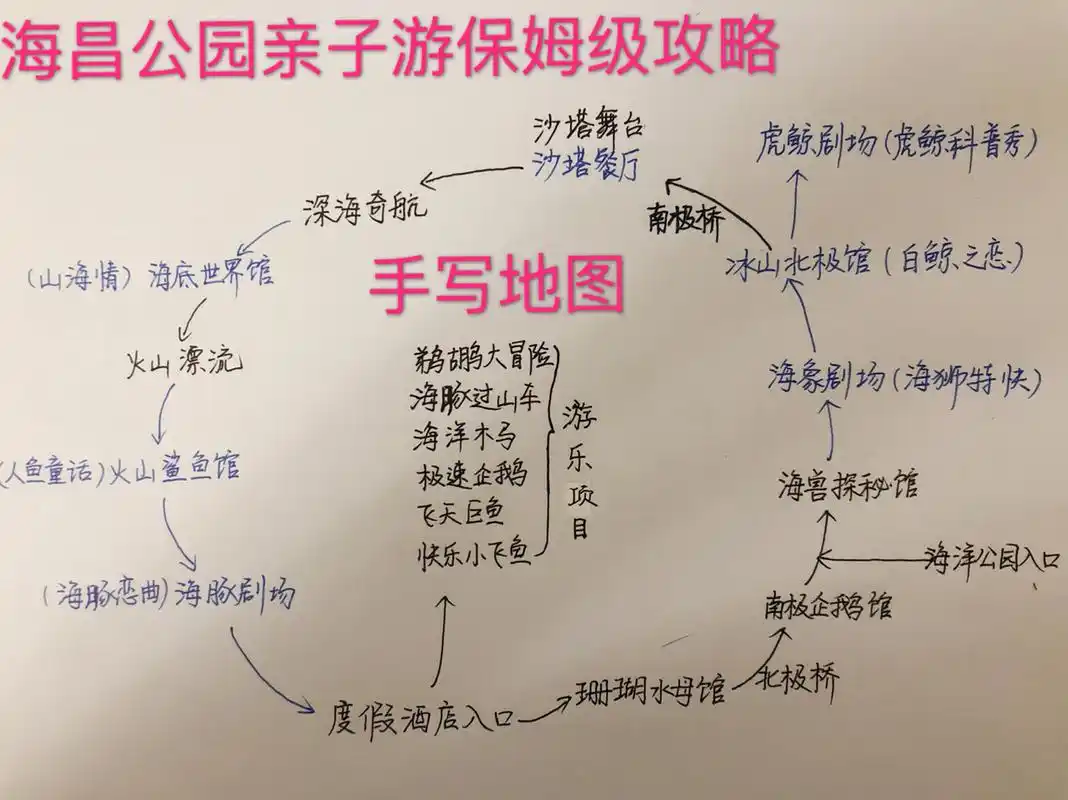 海昌公园亲子游保姆级攻略
沙塔舞台
沙塔餐厅
虎鲸剧场(虎鲸科普秀)
深海奇航
南极桥
冰山北极馆(白鲸之恋)
(山海情)海底世界馆
手写地图
火山漂流
鹈鹕大冒险
海豚过山车
海洋木马
极速企鹅
飞天巨鱼
快乐小飞鱼
游乐项目
海象剧场(海狮特快)
(人鱼童话)火山鲨鱼馆
海兽探秘馆
海洋公园入口
(海豚恋曲)海豚剧场
南极企鹅馆
度假酒店入口
珊瑚水母馆
北极桥